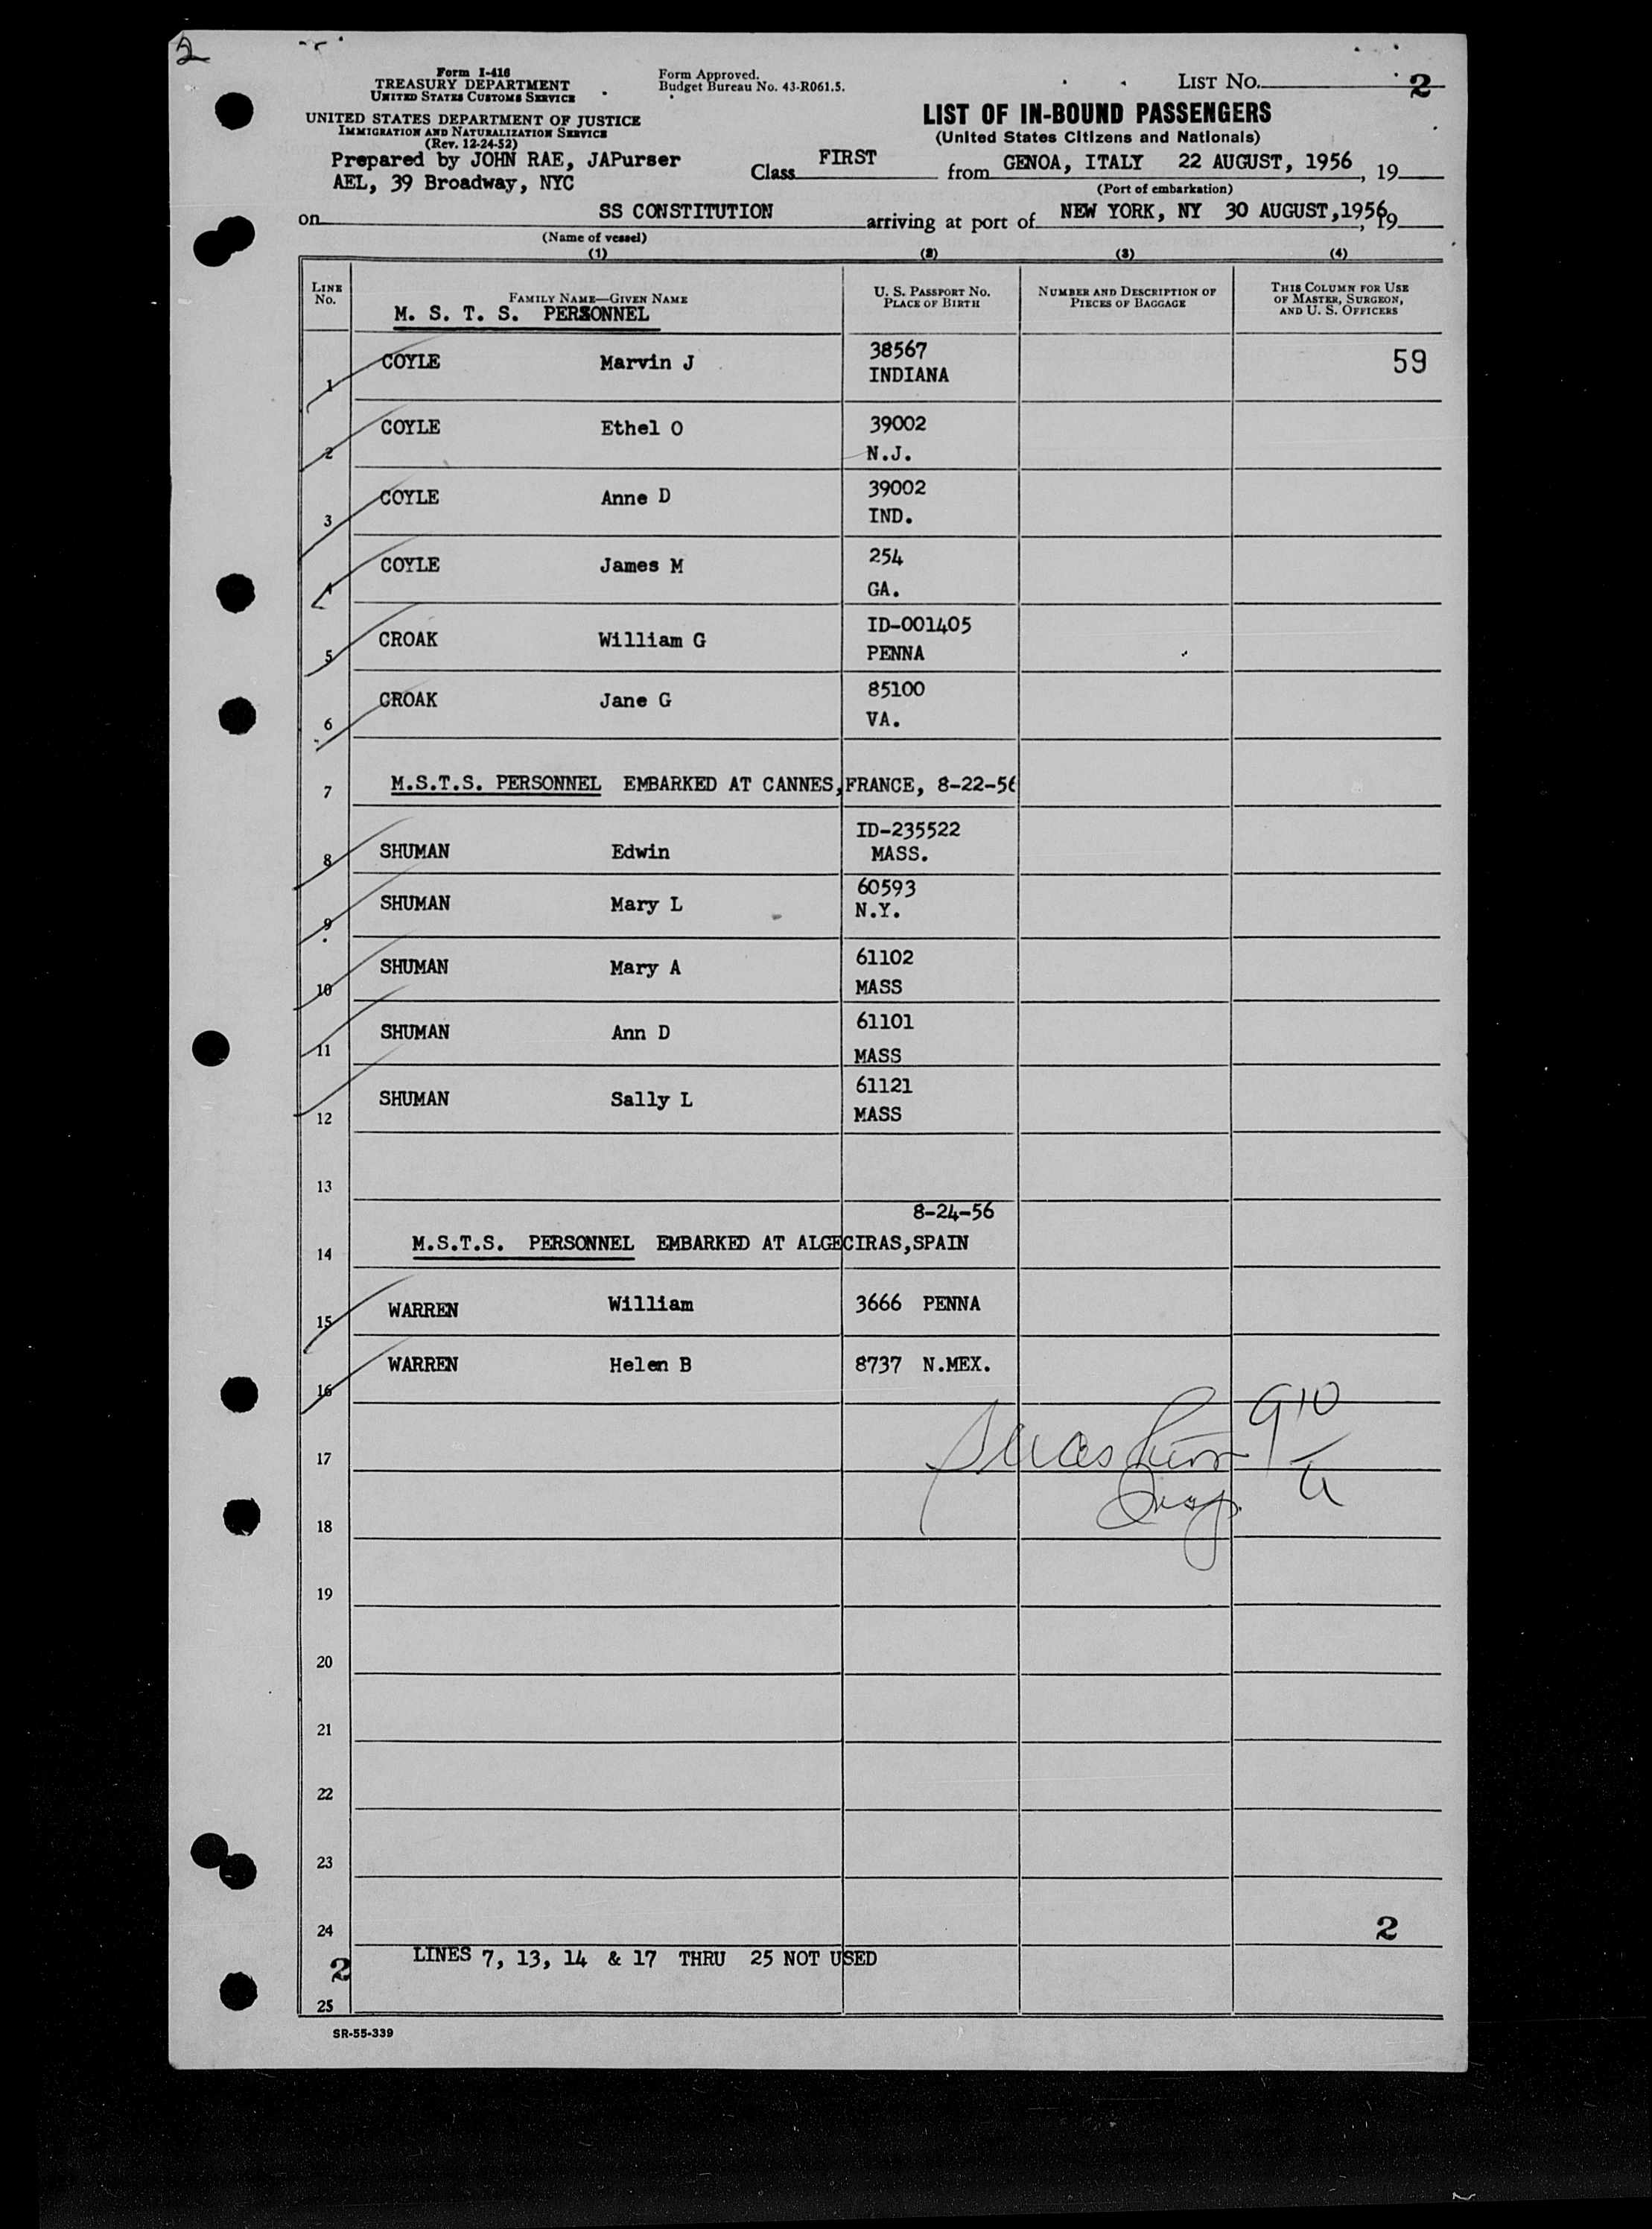 2
Form I-416
TREASURY DEPARTMENT
UNITED STATES CUSTOMS SERVICE
UNITED STATES DEPARTMENT OF JUSTICE
IMMIGRATION AND NATURALIZATION SERVICE
(Rev. 12-24-52)
Prepared by JOHN RAE, JAPurser
AEL, 39 Broadway, NYC
Form Approved.
Budget Bureau No. 43-R061.5.
LIST NO. 2
LIST OF IN-BOUND PASSENGERS
(United States Citizens and Nationals)
Class FIRST from GENOA, ITALY 22 AUGUST, 1956, 19
(Port of embarkation)
on SS CONSTITUTION arriving at port of NEW YORK, NY 30 AUGUST,1956, 19
(Name of vessel)
(1) (2) (3) (4)
LINE No. FAMILY NAME—GIVEN NAME U. S. PASSPORT NO. PLACE OF BIRTH NUMBER AND DESCRIPTION OF PIECES OF BAGGAGE THIS COLUMN FOR USE OF MASTER, SURGEON, AND U. S. OFFICERS
M. S. T. S. PERSONNEL
1 COYLE Marvin J 38567 INDIANA 59
2 COYLE Ethel O 39002 N.J.
3 COYLE Anne D 39002 IND.
4 COYLE James M 254 GA.
5 CROAK William G ID-001405 PENNA
6 CROAK Jane G 85100 VA.
7 M.S.T.S. PERSONNEL EMBARKED AT CANNES, FRANCE, 8-22-56
8 SHUMAN Edwin ID-235522 MASS.
9 SHUMAN Mary L 60593 N.Y.
10 SHUMAN Mary A 61102 MASS
11 SHUMAN Ann D 61101 MASS
12 SHUMAN Sally L 61121 MASS
13
8-24-56
14 M.S.T.S. PERSONNEL EMBARKED AT ALGECIRAS,SPAIN
15 WARREN William 3666 PENNA
16 WARREN Helen B 8737 N.MEX.
910
17
18
19
20
21
22
23
24 2
LINES 7, 13, 14 & 17 THRU 25 NOT USED
2
25
SR-55-339